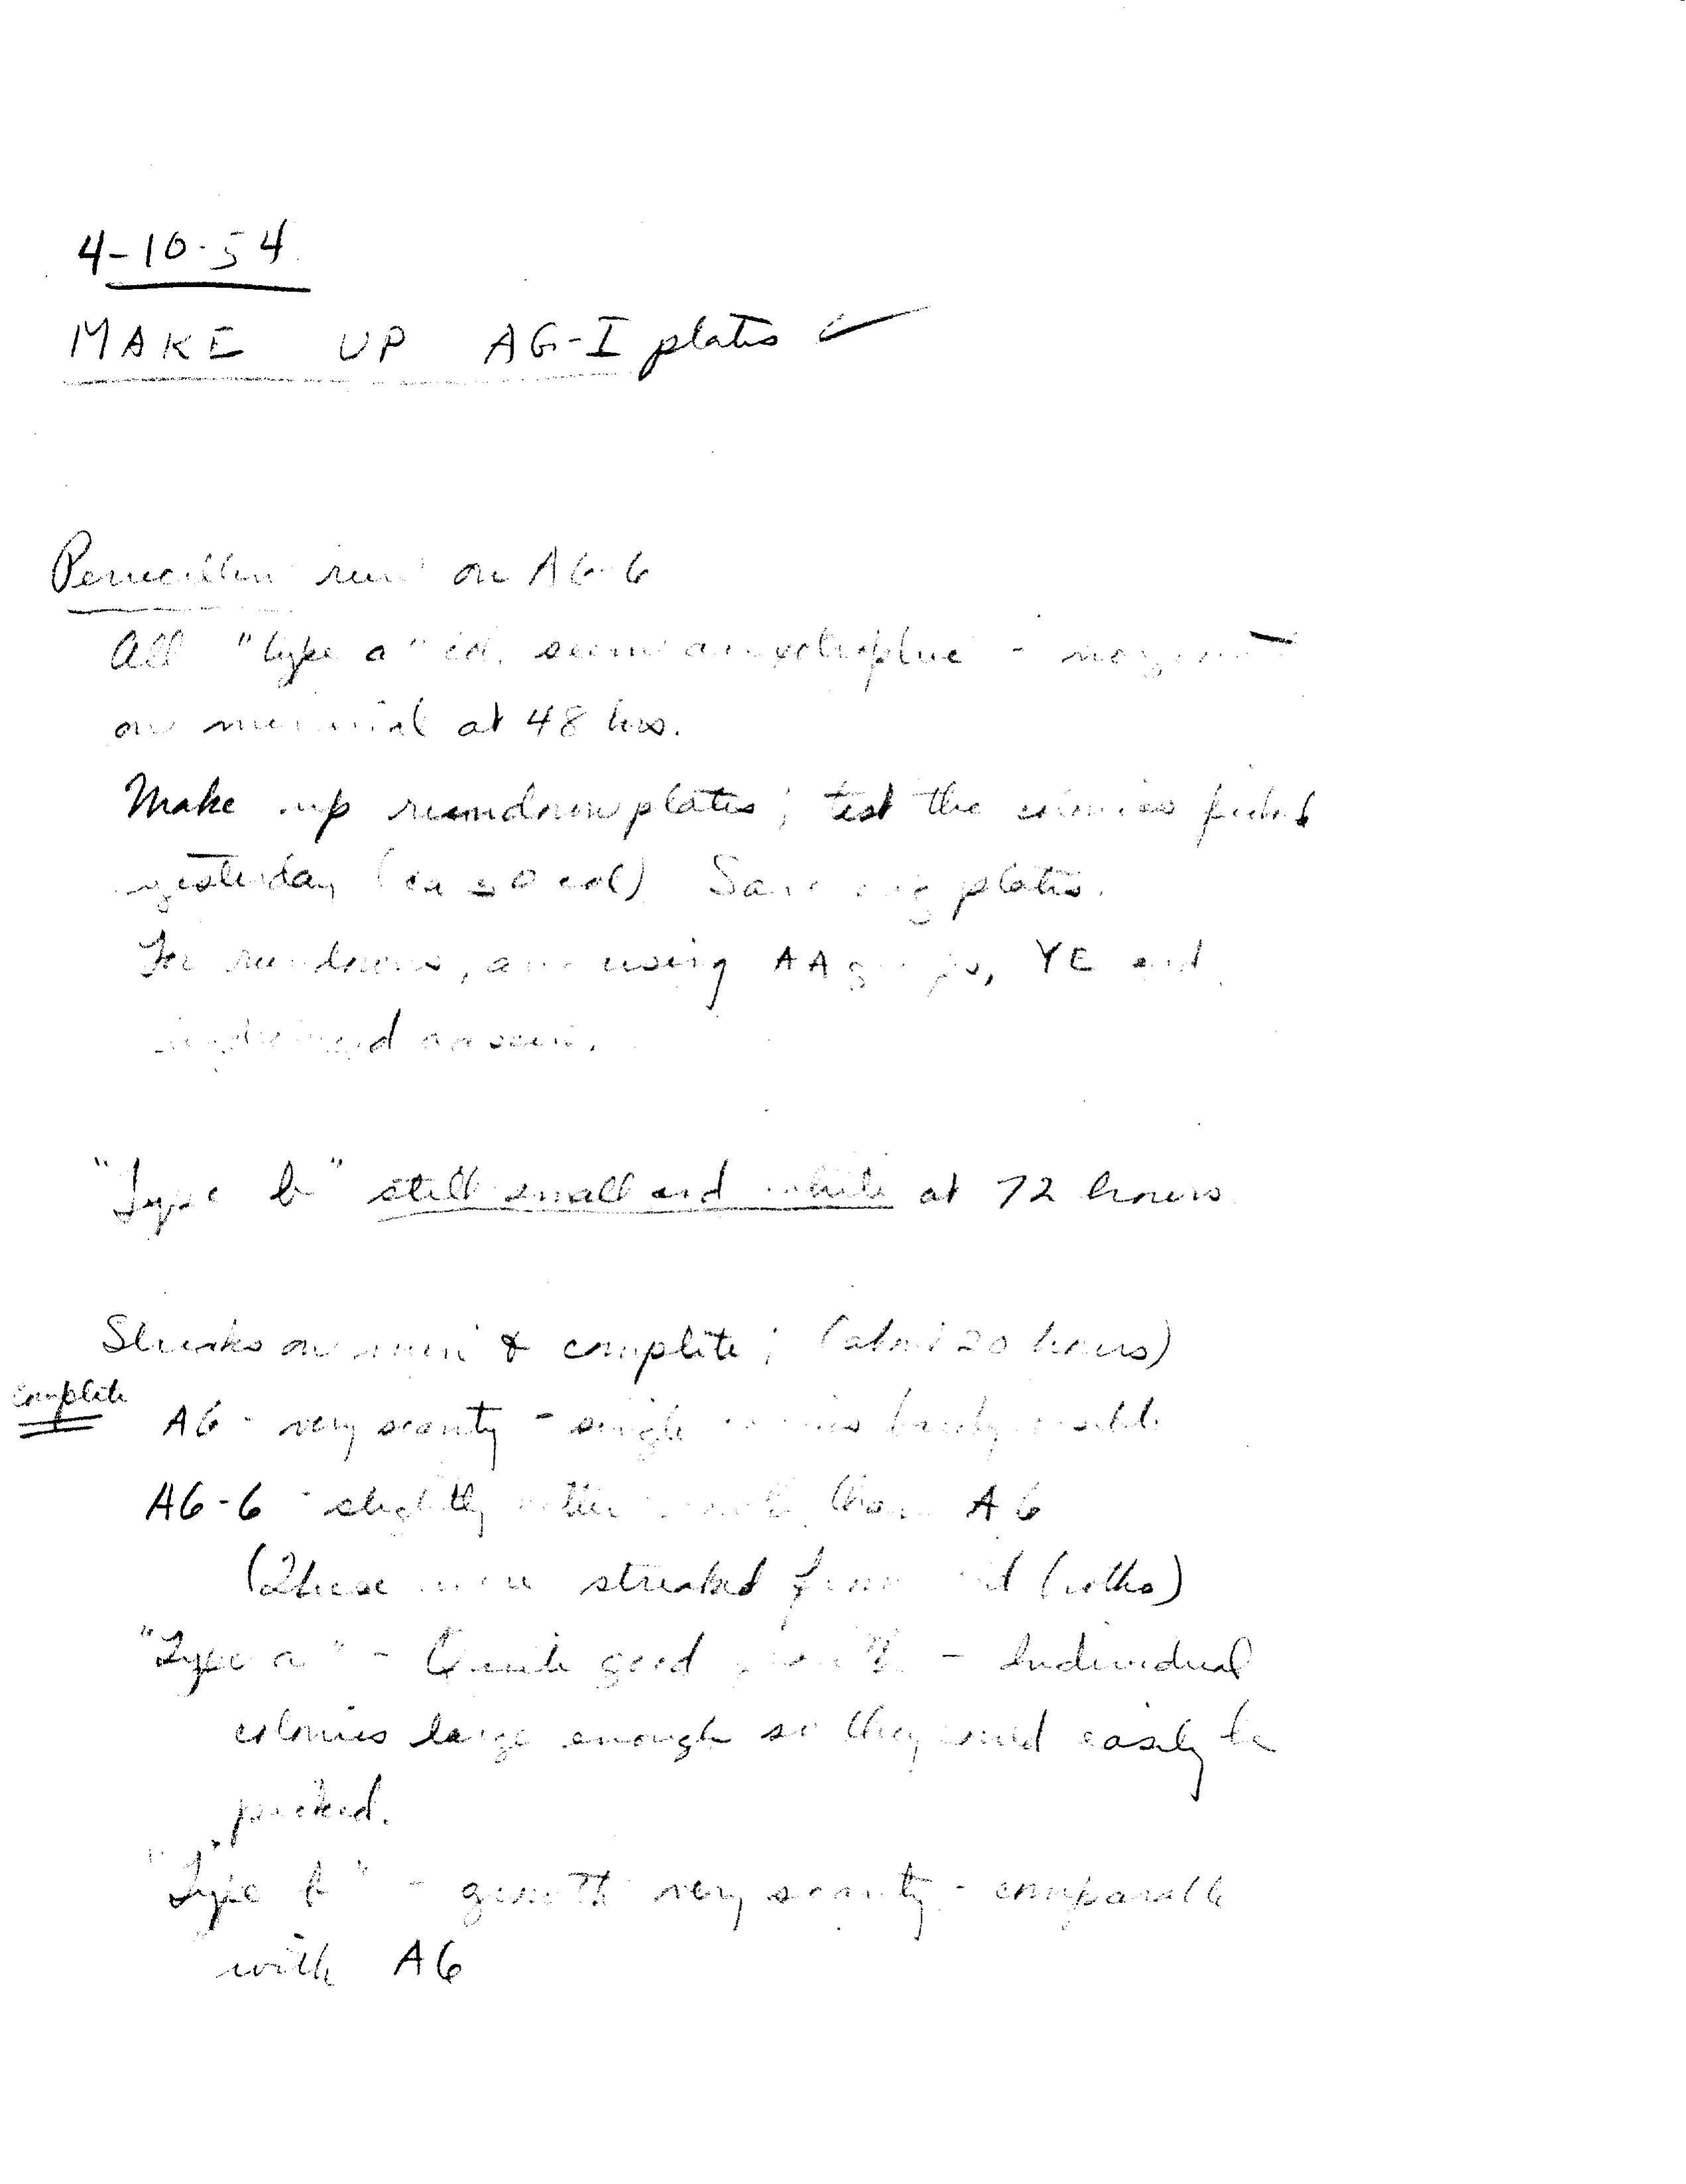 4-10-54
MAKE UP AG-I plates ✓
Penicillin run on A6-6
All "type a" col. seem auxotrophic - no growth
on minimal at 48 hrs.
Make up rundown plates; test the colonies picked
yesterday (ca 50 col) Save orig plates.
For rundowns, am using AA groups, YE and
"Type b" still small and white at 72 hours
Streaks on min & complete; (about 20 hours)
Complete
A6 - very scanty - single colonies barely visible
A6-6 - slightly better growth than A6
(These were streaked from old cells)
"Type a" - Quite good growth - Individual
colonies large enough so they could easily be
picked.
"Type b" - growth very scanty - comparable
with A6